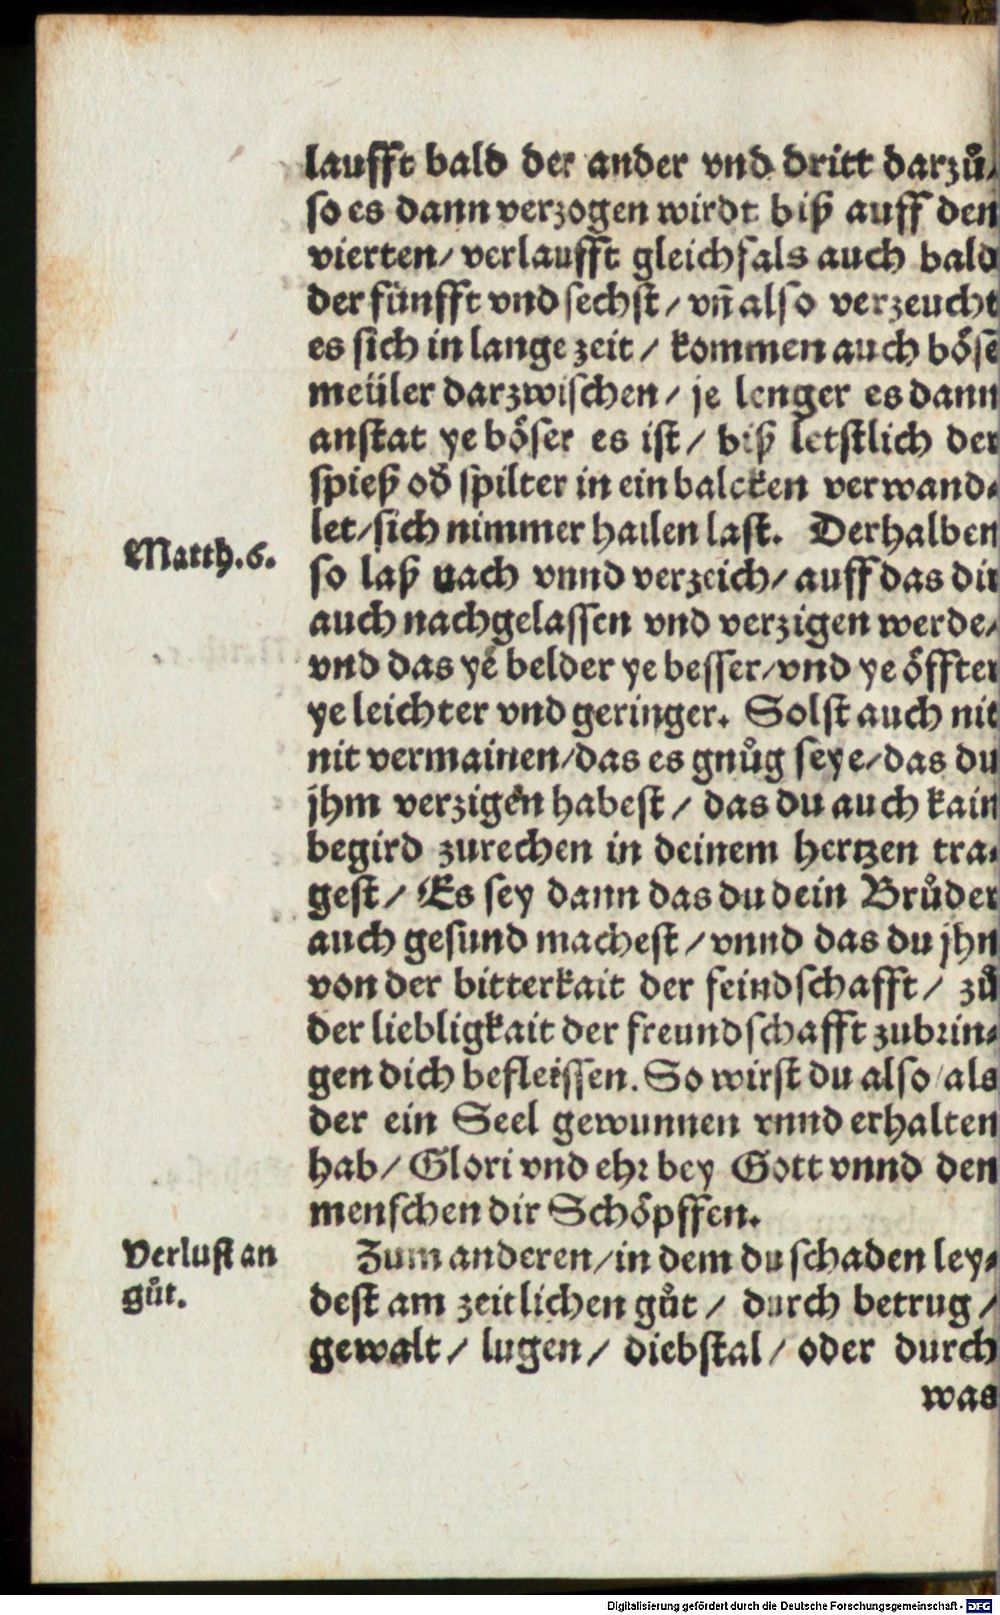 laufft bald der ander vnd dritt darzuͦ/
so es dann verzogen wirdt biß auff den
vierten/ verlaufft gleichfals auch bald
der fünfft vnd sechst/ vn̄ also verzeucht
es sich in lange zeit/ kommen auch böse
meüler darzwischen/ je lenger es dann
anstat ye böser es ist/ biß letstlich der
spieß od̕ spilter in ein balcken verwand⸗
let/ sich nimmer hailen last. Derhalben
Matth.6.
so laß nach vnnd verzeich/ auff das dir
auch nachgelassen vnd verzigen werde/
vnd das ye belder ye besser/ vnd ye öffter
ye leichter vnd geringer. Solst auch nit
nit vermainen/ das es gnuͦg seye/ das du
jhm verzigen habest/ das du auch kain
begird zurechen in deinem hertzen tra⸗
gest/ Es sey dann das du dein Bruͦder
auch gesund machest/ vnnd das du jhn
von der bitterkait der feindschafft/ zuͦ
der liebligkait der freundschafft zubrin⸗
gen dich befleissen. So wirst du also/ als
der ein Seel gewunnen vnnd erhalten
hab/ Glori vnd ehr bey Gott vnnd den
menschen dir Schöpffen.
Verlust an
guͦt.
Zum anderen/ in dem du schaden ley⸗
dest am zeitlichen guͦt/ durch betrug/
gewalt/ lugen/ diebstal/ oder durch
was
Digitalisierung gefördert durch die Deutsche Forschungsgemeinschaft - DFG